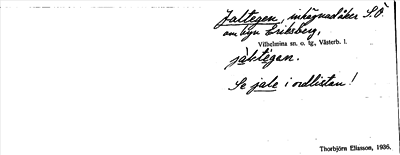 Jaltegen, inhägnad åker S.Ö.
om byn Eriksberg,
Vilhelmina sn. o. tg., Västerb. l.
jàltégan.
Se jale i ordlistan!
Thorbjörn Eliasson, 1936.